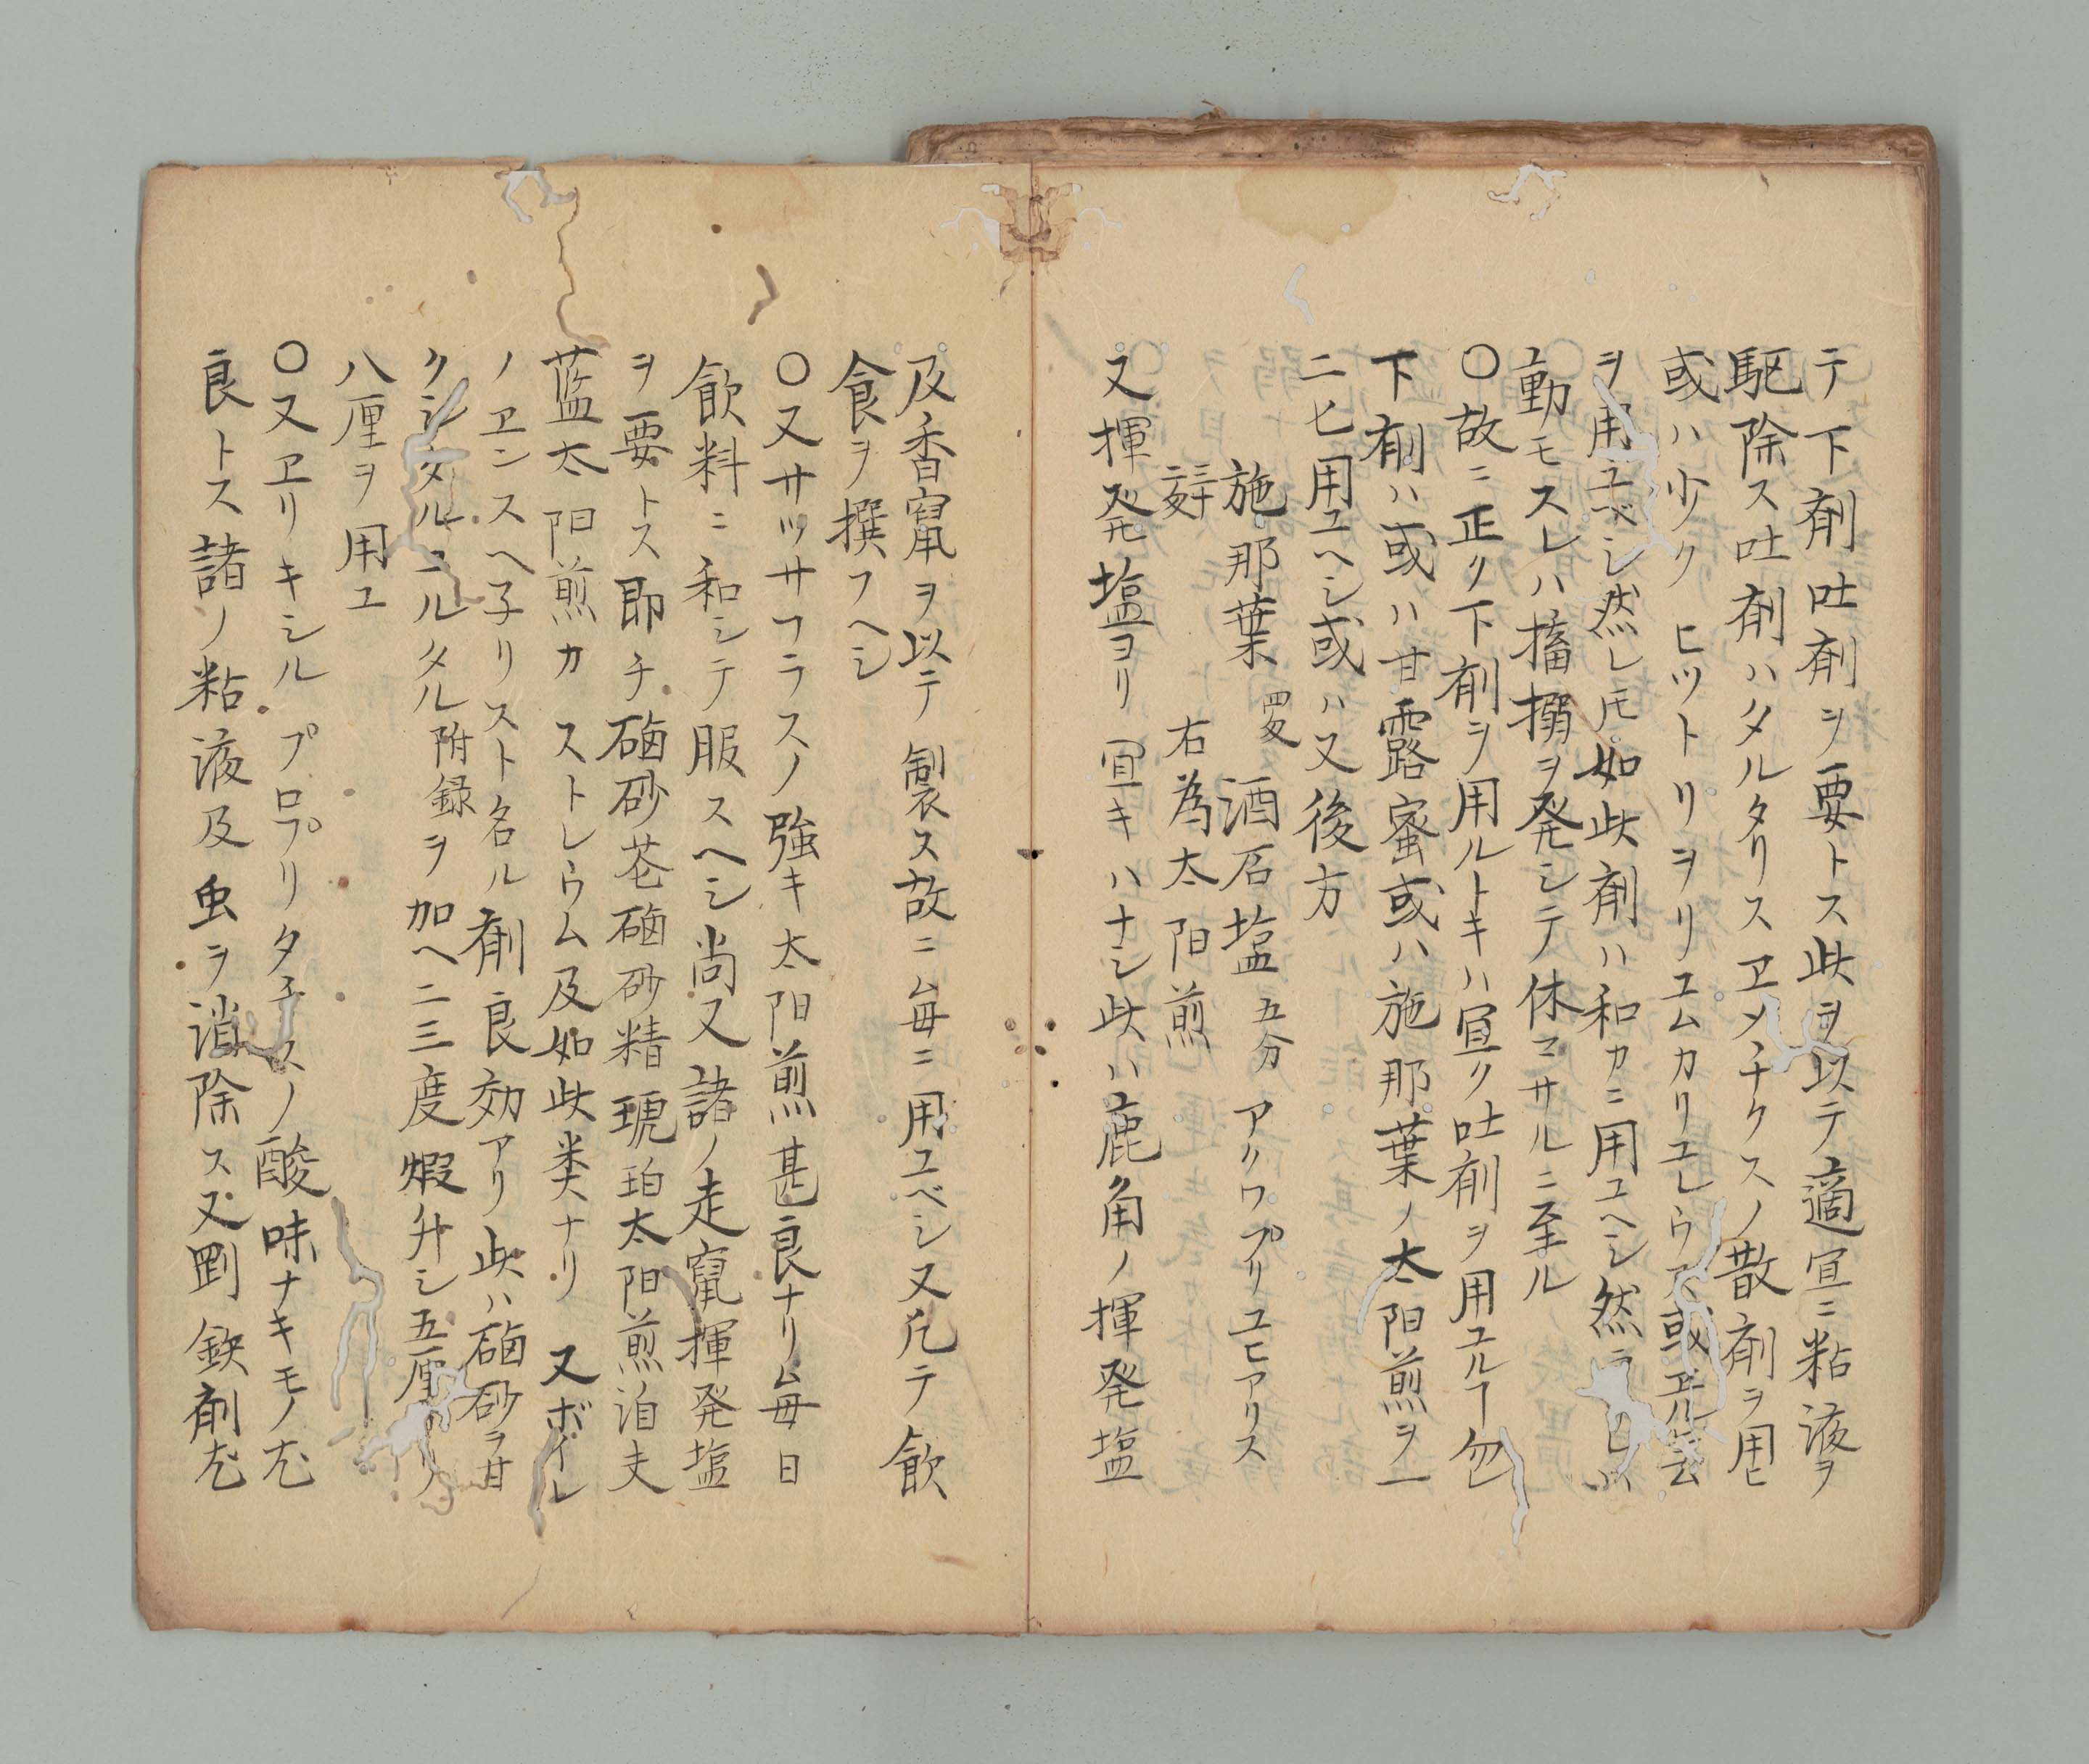 テ下剤吐剤ヲ要トス此ヲ以テ適宜ニ粘液ヲ
駆除ス吐剤ハタルタリスヱメチクスノ散剤ヲ用ヒ
或ハ少クヒツトリヲリユムカリユレウス或ヱル
ヲ用ユベシ然レ𪜈如此剤ハ和カニ用ユヘシ然ラ
動モスレハ搐搦ヲ発シテ休マサルニ至ル
〇故ニ正ク下剤ヲ用ルトキハ宜ク吐剤ヲ用ユルヿ勿
下剤ハ或ハ甘露蜜或ハ施那葉ノ太阳煎ヲ一
二匕用ユヘシ或ハ又後方
施那葉 四爻 酒石塩 五分 アクワプリユヒアリス
右為太阳煎
又揮発塩ヨリ冝キハナシ此ハ鹿角ノ揮発塩
及香竄ヲ以テ製ス故ニ厶毎ニ用ユベシ又凡テ飲
食ヲ撰フヘシ
〇又サツサフラスノ強キ太阳煎甚良ナリ厶毎日
飲料ニ和シテ服スヘシ尚又諸ノ走竄揮発塩
ヲ要トス即チ硇砂花硇砂精琥珀太阳煎泊夫
藍太阳煎カストレウム及如此类ナリ 又ボイレ
ノヱンスヘ子リスト名ル剤良効アリ此ハ硇砂ヲ甘
クシタルニルタル附録ヲ加ヘ二三度煆升シ五厘
八厘ヲ用ユ
〇又ヱリキシルプロプリタチスノ酸味ナキモノ尤
良トス諸ノ粘液及虫ヲ消除ス又剛鉄剤尤